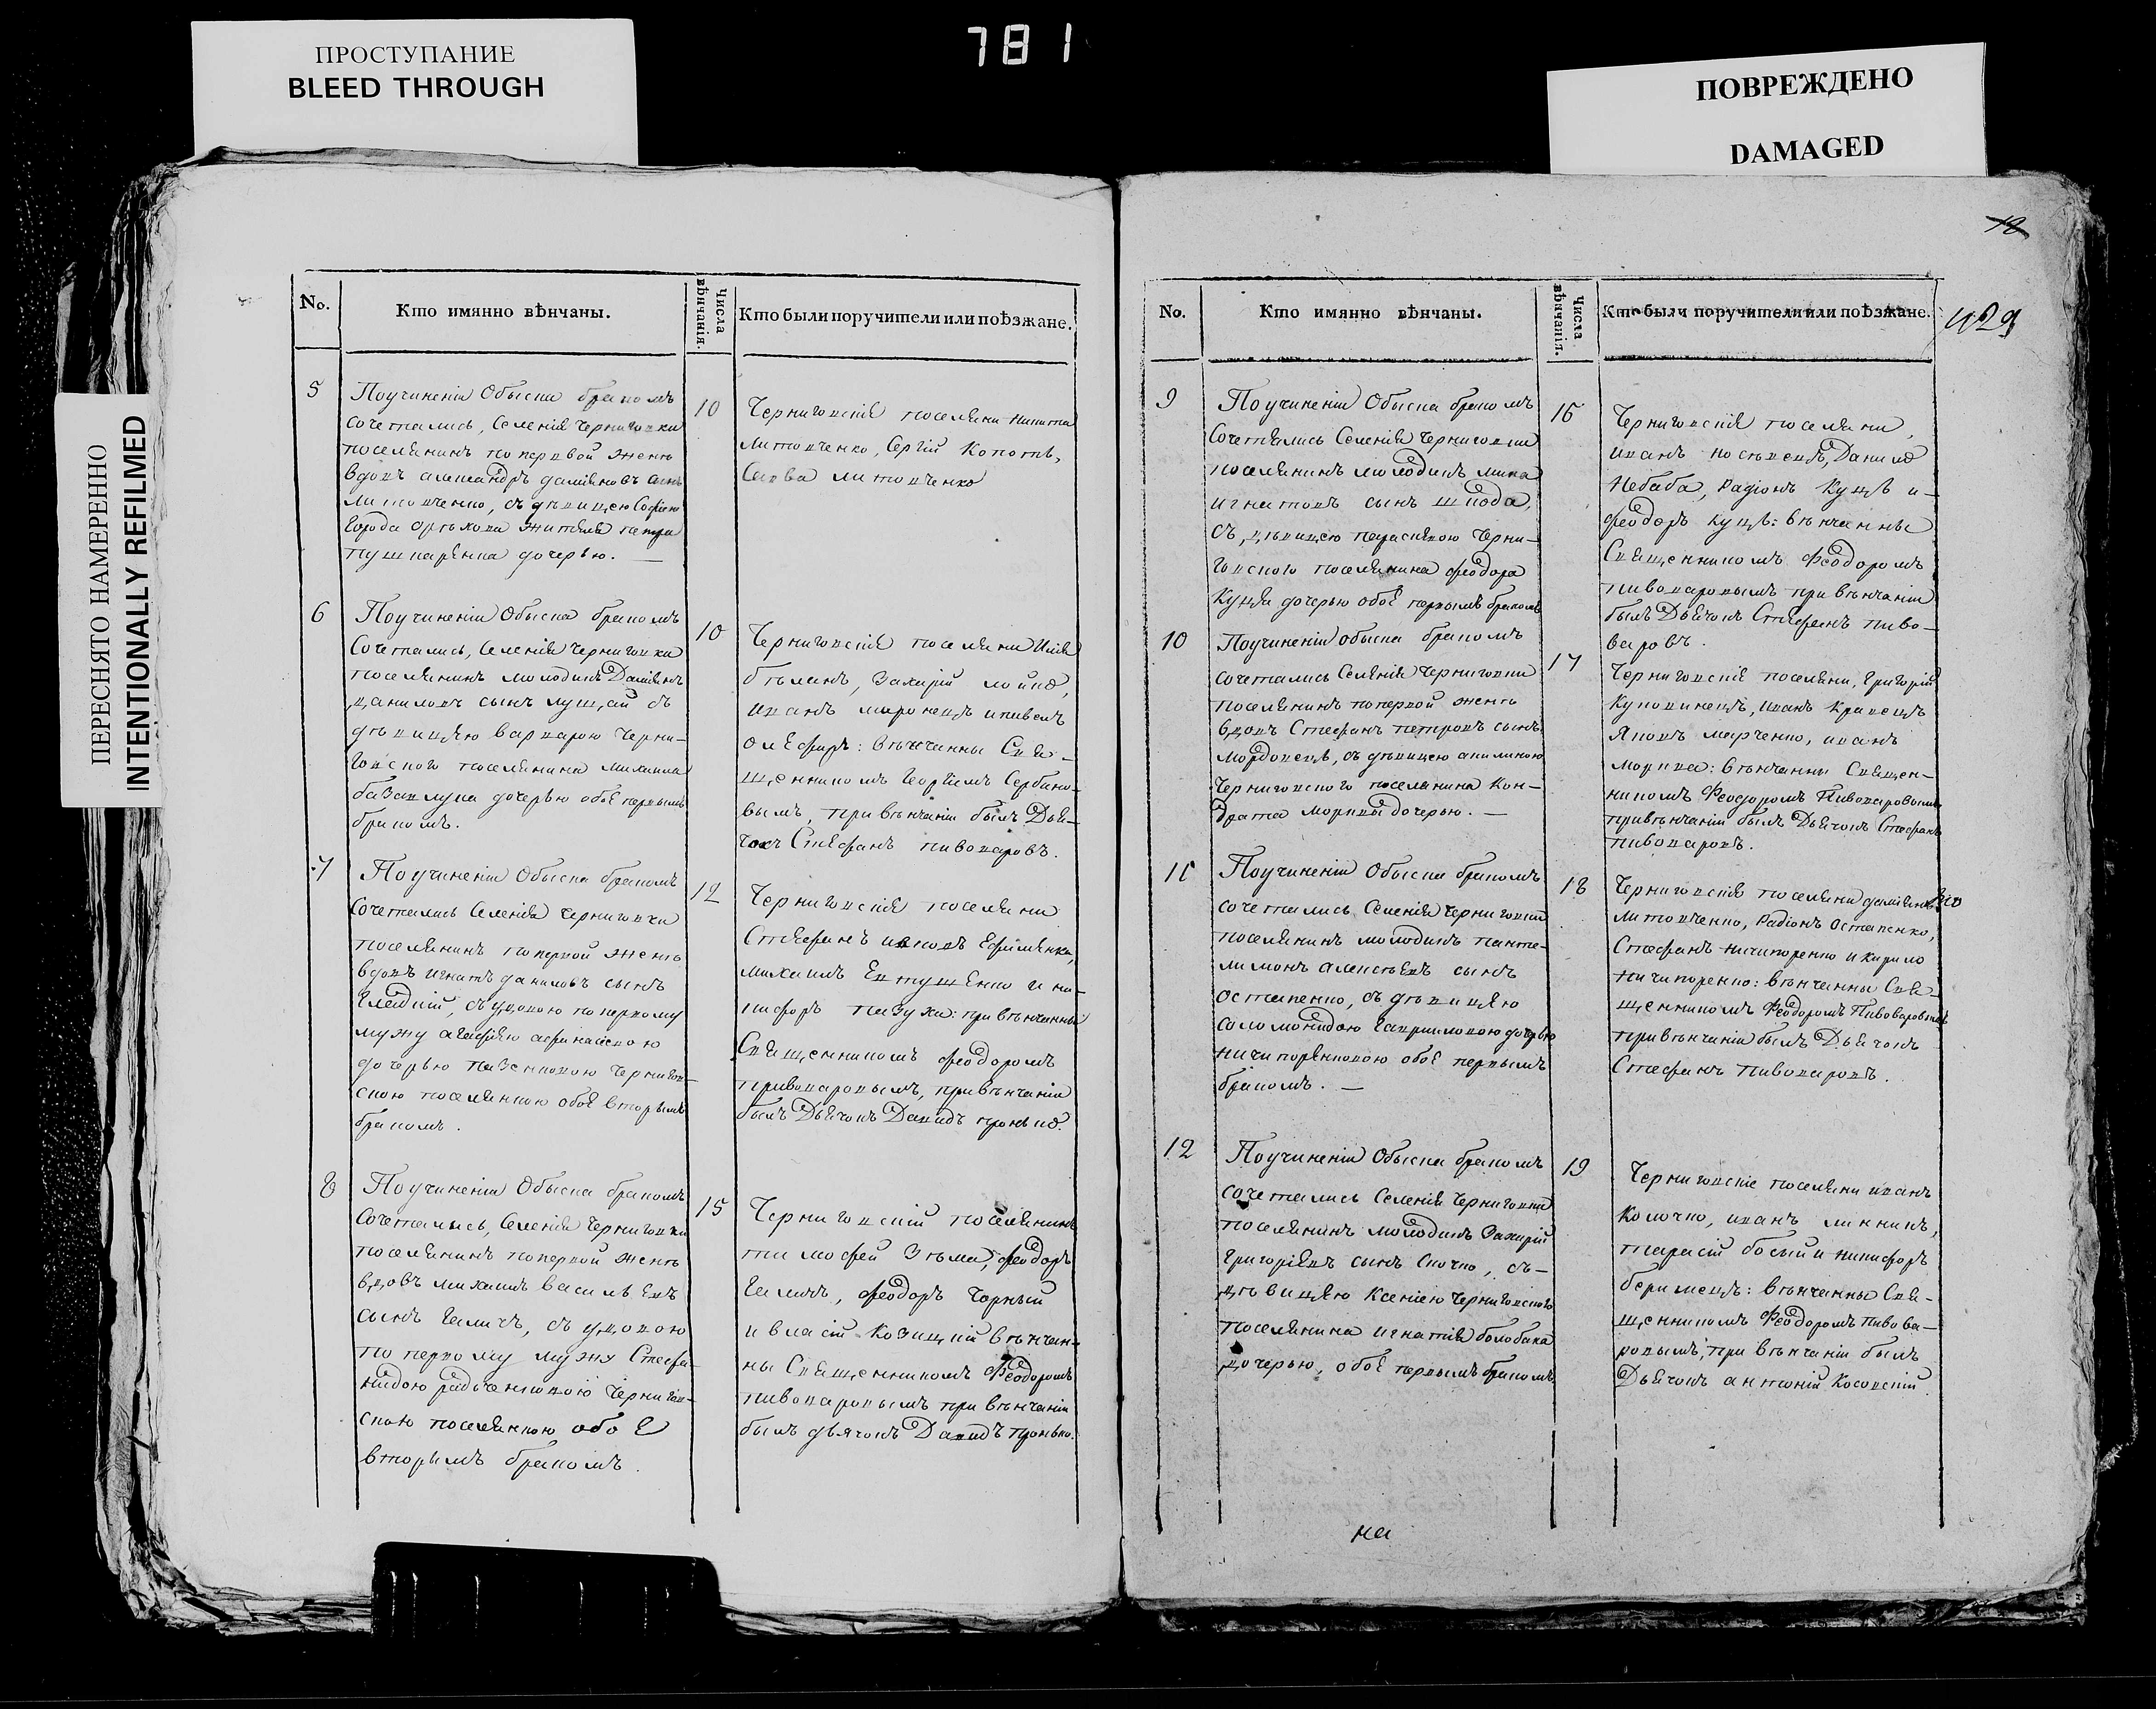 ПРОСТУПАНИЕ
BLEED THROUGH
781
ПОВРЕЖДЕНО
DAMAGED
ПЕРЕСНЯТО НАМЕРЕННО
INTENTIONALLY REFILMED
No.
Кто имянно вѣнчаны.
Числа вѣнчанія.
Кто были поручители или поѣзжане.
5
Поучиненіи Обыска бракомъ
сочетались, Селенія Черниговки
поселянинъ по первой женѣ
вдовъ александръ даміановъ сынъ
литовченко, съ дѣвицею Софіею
города орѣхова жителя
пушкаренка дочерью. —
10
Черниговскія поселяни никита
литовченко, Сергій Копоть,
Савва литовченко
6
Поучиненіи Обыска бракомъ
Сочетались, Селенія Черниговки
поселянинъ молодикъ Даміянъ
даниловъ сынъ лущай съ
дѣвицею варварою Черни-
говского поселянина михаила
базавлука дочерью обоё первымъ
бракомъ.
10
Черниговскія поселяни Илія
бѣланъ, Захарій лойко,
иванъ миронецъ ипавелъ
олефиръ: вѣнчанны Свя-
щенникомъ Георгіемъ Сербино-
вымъ, при вѣнчаніи былъ Дья-
чокъ Стефанъ пивоваровъ.
7
Поучиненіи Обыска бракомъ
Сочетались Селенія Черниговки
поселянинъ по первой женѣ
вдовъ игнатъ даниловъ сынъ
Гладкій, съ удовою по первому
мужу агафіею афанасовою
дочерью Черигов-
скою поселянкою обоё вторымъ
бракомъ.
12
Черниговскія поселяни
Стефанъ ияковъ Ефименки,
михаилъ Евтушенко и ни-
кифоръ пазуха: при вѣнчанны
Священникомъ феодоромъ
пивоваровымъ, при вѣнчаніи
былъ Дьячокъ Давидъ пронько.
8
Поучиненіи Обыска бракомъ
Сочетались, Селенія Черниговки
поселянинъ по первой женѣ
вдовъ михаилъ васильевъ
сынъ Галичъ, съ удовою
по первому мужу Стефа-
нидою радченковою Чернигов-
скою поселянкою обоё
вторымъ бракомъ.
15
Черниговскій поселянинъ
тимофей Зѣма, феодоръ
Галичъ, феодоръ Чорный
и власій Козицкій вѣнчан-
ны Священникомъ Феодоромъ
пивоваровымъ при вѣнчаніи
былъ дьячокъ Давидъ пронько.
18
429
No.
Кто имянно вѣнчаны.
Числа вѣнчанія.
Кто были поручители или поѣзжане.
9
Поучиненіи Обыска бракомъ
Сочетались Селенія Черниговки
поселянинъ молодикъ мина
игнатовъ сынъ шкода,
съ, дѣвицею параскевою Черни-
говского поселянина феодора
Куця дочерью обоё первымъ бракомъ
16
Черниговскія поселяни,
иванъ Данило
Небаба, Радіонъ Куць и-
феодоръ куць: вѣнчанны
Священникомъ Феодоромъ
пивоваровымъ при вѣнчаніи
былъ Дьячокъ Стефанъ пиво-
варовъ.
10
Поучиненіи обыска бракомъ
сочетались Селенія Черниговки
поселянинъ по первой женѣ
вдовъ Стефанъ петровъ сынъ
мордовецъ, съ дѣвицею акилиною
Черниговского поселянина Кон-
драта моркви дочерью. —
17
Черниговскія поселяни, Григорій
Куповинецъ, иванъ Кравецъ
Яковъ марченко, иванъ
морква: вѣнчанны Священ-
никомъ Феодоромъ Пивоваровымъ
при вѣнчаніи былъ Дьячокъ Стефанъ
пивоваровъ.
11
Поучиненіи Обыска бракомъ
сочетались Селенія Черниговки
поселянинъ молодикъ панте-
лимонъ алексѣевъ сынъ
остапенко, съ дѣвицею
саломонидою Гавриловою дочерью
ничипоренковою обоё первымъ
бракомъ. —
18
Черниговскія поселяни
литовченко, Радіонъ Остапенко,
Стефанъ ничипоренко и кирило
ничипоренко: вѣнчанны Свя-
щенникомъ Феодоромъ Пивоваровымъ
при вѣнчаніи былъ Дьячокъ
Стефанъ пивоваровъ.
12
Поучиненіи Обыска бракомъ
сочетались Селенія Черниговки
поселянинъ молодикъ Захарій
григоріевъ сынъ Скочко, съ-
дѣвицею Ксеніею Черниговского
поселянина игнатія болобана
дочерью, обоё первымъ бракомъ
19
Черниговскіе поселяни иванъ
Колочко, иванъ линникъ,
тарасій босый и никифоръ
беримецъ: вѣнчанны Свя-
щенникомъ Феодоромъ пивова-
ровымъ, при вѣнчаніи былъ
Дьячокъ антоній Косовскій.
на